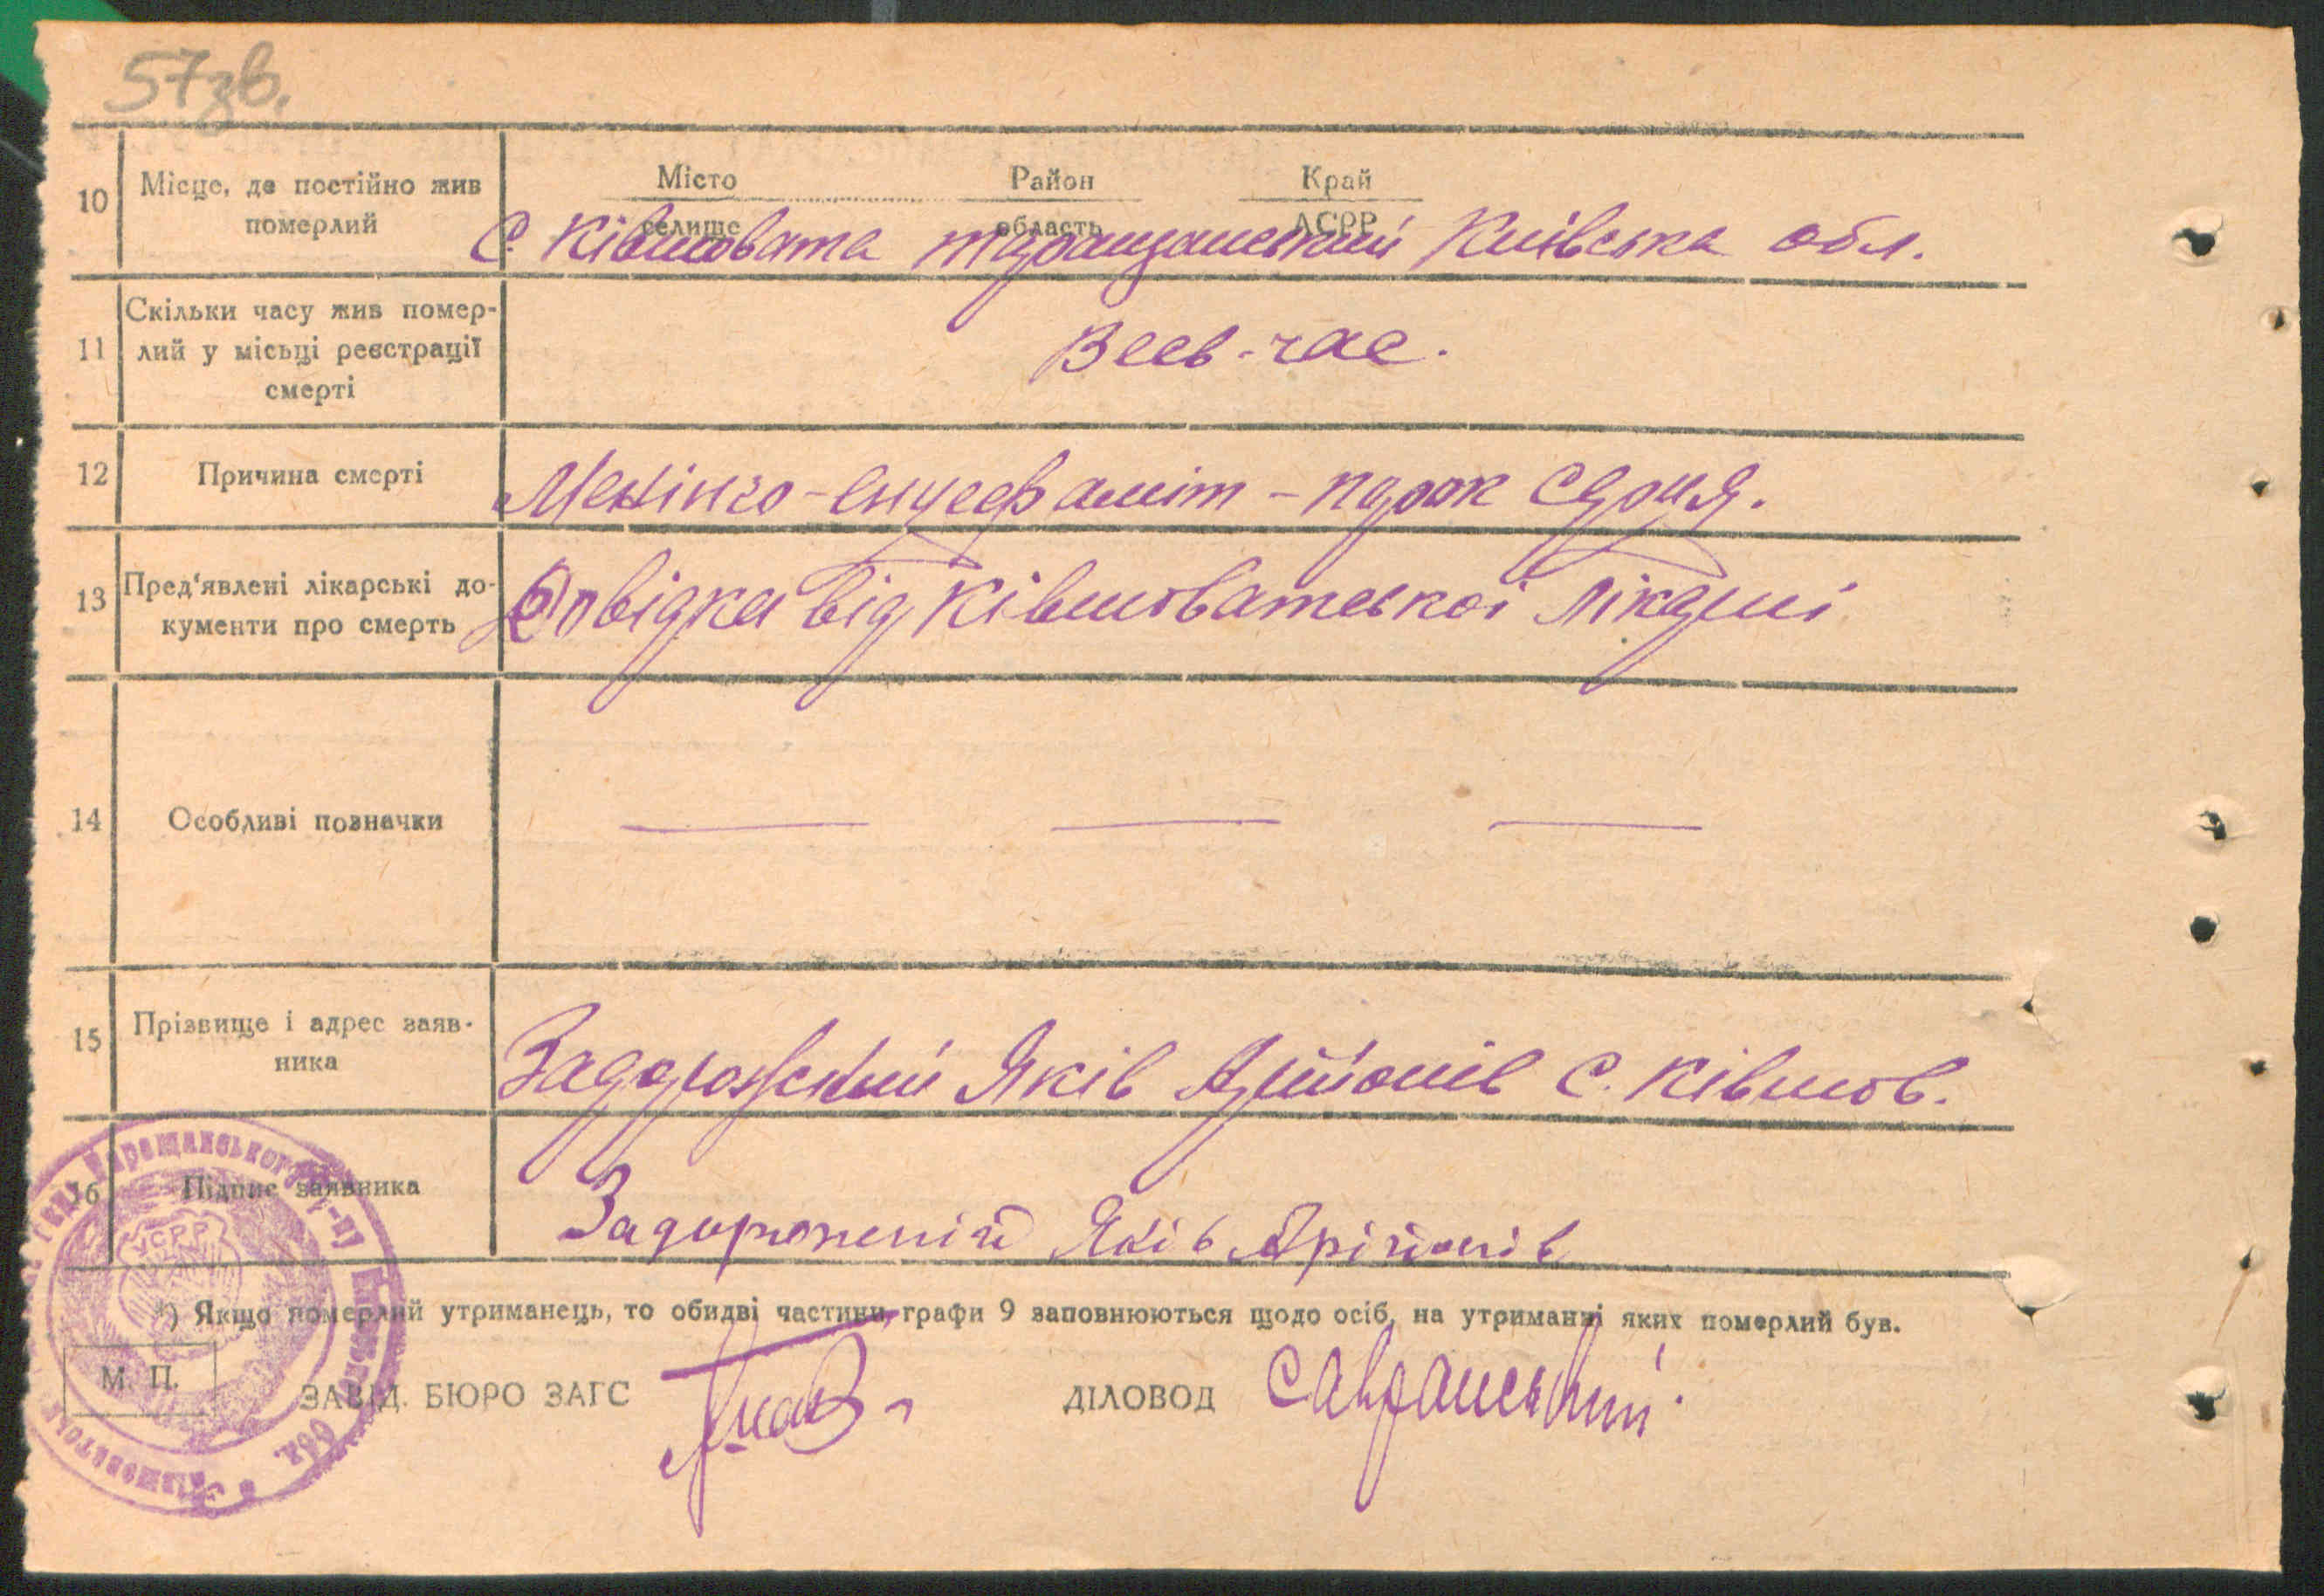 57зв.
10 Місце, де постійно жив померлий
Місто Район Край
селище область АСРР
с. Ківшовата таращанський Київська обл.
11 Скільки часу жив помер-
лий у місьці реєстрації
смерті
Весь-час.
12 Причина смерті
Менінго-енцефаліт - порок сердця.
13 Пред'явлені лікарські до-
кументи про смерть
Довідка від Ківшоватської лікарні
14 Особливі позначки
15 Прізвище і адрес заяв-
ника
Задорожний Яків с. Ківшов.
16 Підпис заявника
Яків
*) Якщо померлий утриманець, то обидві частини графи 9 заповнюються щодо осіб, на утриманні яких померлий був.
М. П.
ЗАВІД. БЮРО ЗАГС
ДІЛОВОД Савранський.
Таращанського р-ну Київської Обл.
УСРР